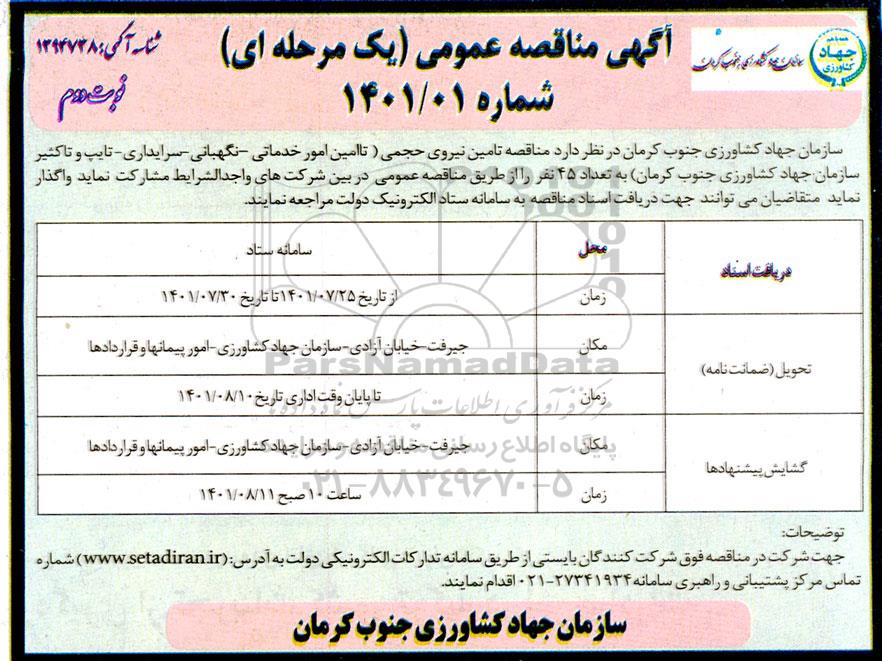 شناسه آگهی: ۱۳۹۴۷۳۸
نوبت دوم
آگهی مناقصه عمومی (یک مرحله ای)
شماره ۱۴۰۱/۰۱
جهاد
کشاورزی
سازمان جهاد کشاورزی جنوب کرمان
سازمان جهاد کشاورزی جنوب کرمان در نظر دارد مناقصه تامین نیروی حجمی ( تاامین امور خدماتی –نگهبانی–سرایداری– تایپ و تاکثیر
سازمان جهاد کشاورزی جنوب کرمان) به تعداد ۴۵ نفر را از طریق مناقصه عمومی در بین شرکت های واجدالشرایط مشارکت نماید واگذار
نماید متقاضیان می توانند جهت دریافت اسناد مناقصه به سامانه ستاد الکترونیک دولت مراجعه نمایند.
دریافت اسناد
محل
سامانه ستاد
زمان
از تاریخ ۱۴۰۱/۰۷/۲۵ تا تاریخ ۱۴۰۱/۰۷/۳۰
تحویل (ضمانت نامه)
مکان
جیرفت–خیابان آزادی–سازمان جهاد کشاورزی–امور پیمانها و قراردادها
زمان
تا پایان وقت اداری تاریخ ۱۴۰۱/۰۸/۱۰
گشایش پیشنهادها
مکان
جیرفت–خیابان آزادی–سازمان جهاد کشاورزی–امور پیمانها و قراردادها
زمان
ساعت ۱۰ صبح ۱۴۰۱/۰۸/۱۱
ParsNamadData
مرکز فرآوری اطلاعات پارس نماد داده ها
پایگاه اطلاع رسانی
۰۲۱-۸۸۳۴۹۶۷۰-۵
توضیحات:
جهت شرکت در مناقصه فوق شرکت کنندگان بایستی از طریق سامانه تدارکات الکترونیکی دولت به آدرس: (www.setadiran.ir) شماره
تماس مرکز پشتیبانی و راهبری سامانه ۲۷۳۴۱۹۳۴-۰۲۱ اقدام نمایند.
سازمان جهاد کشاورزی جنوب کرمان